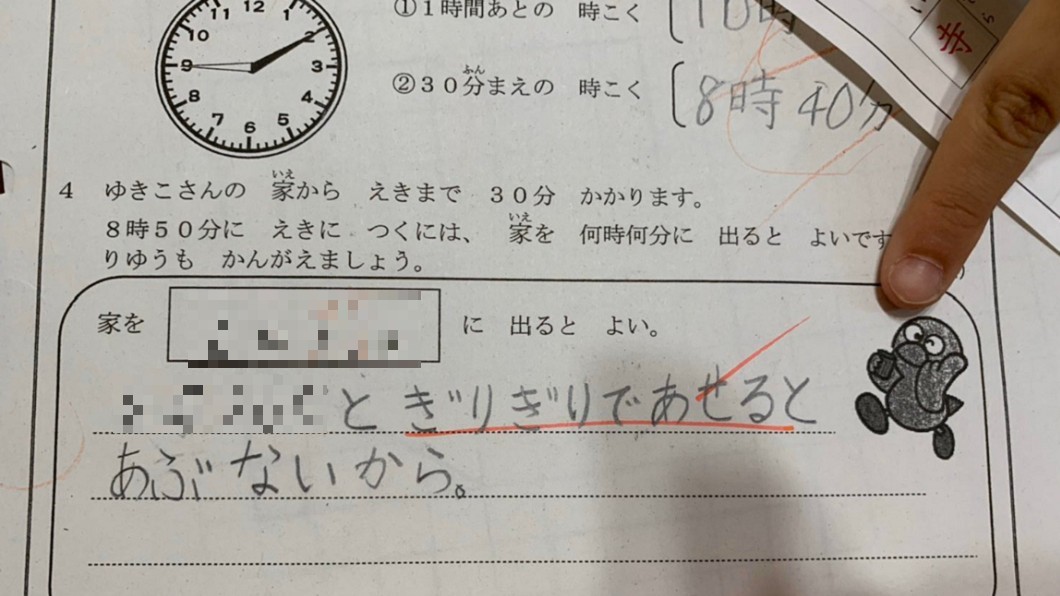 11 12 1
10 2
9 3
8 4
7 6 5
①1時間あとの 時こく
10時
ふん
②30分まえの 時こく
8時40分
寺
いえ
4 ゆきこさんの 家から えきまで 30分 かかります。
いえ
8時50分に えきに つくには、 家を 何時何分に 出ると よいです
りゆうも かんがえましょう。
家を に 出ると よい。
と ぎりぎりであせると
あぶないから。